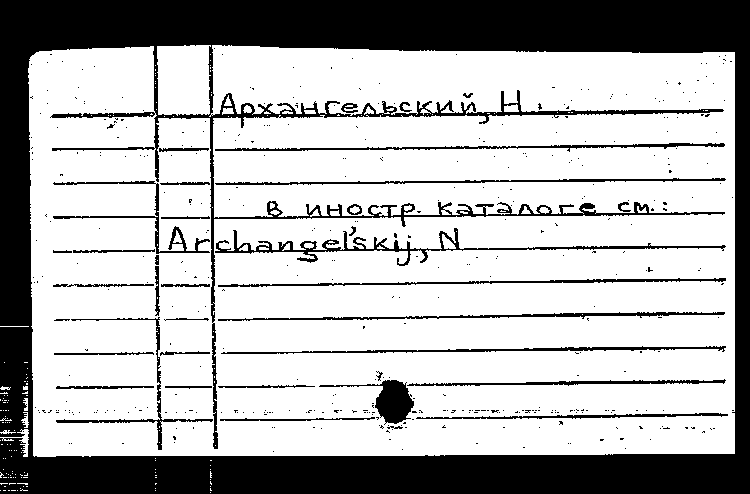 Архангельский, Н.
в иностр. каталоге см.:
Archangel'skij, N